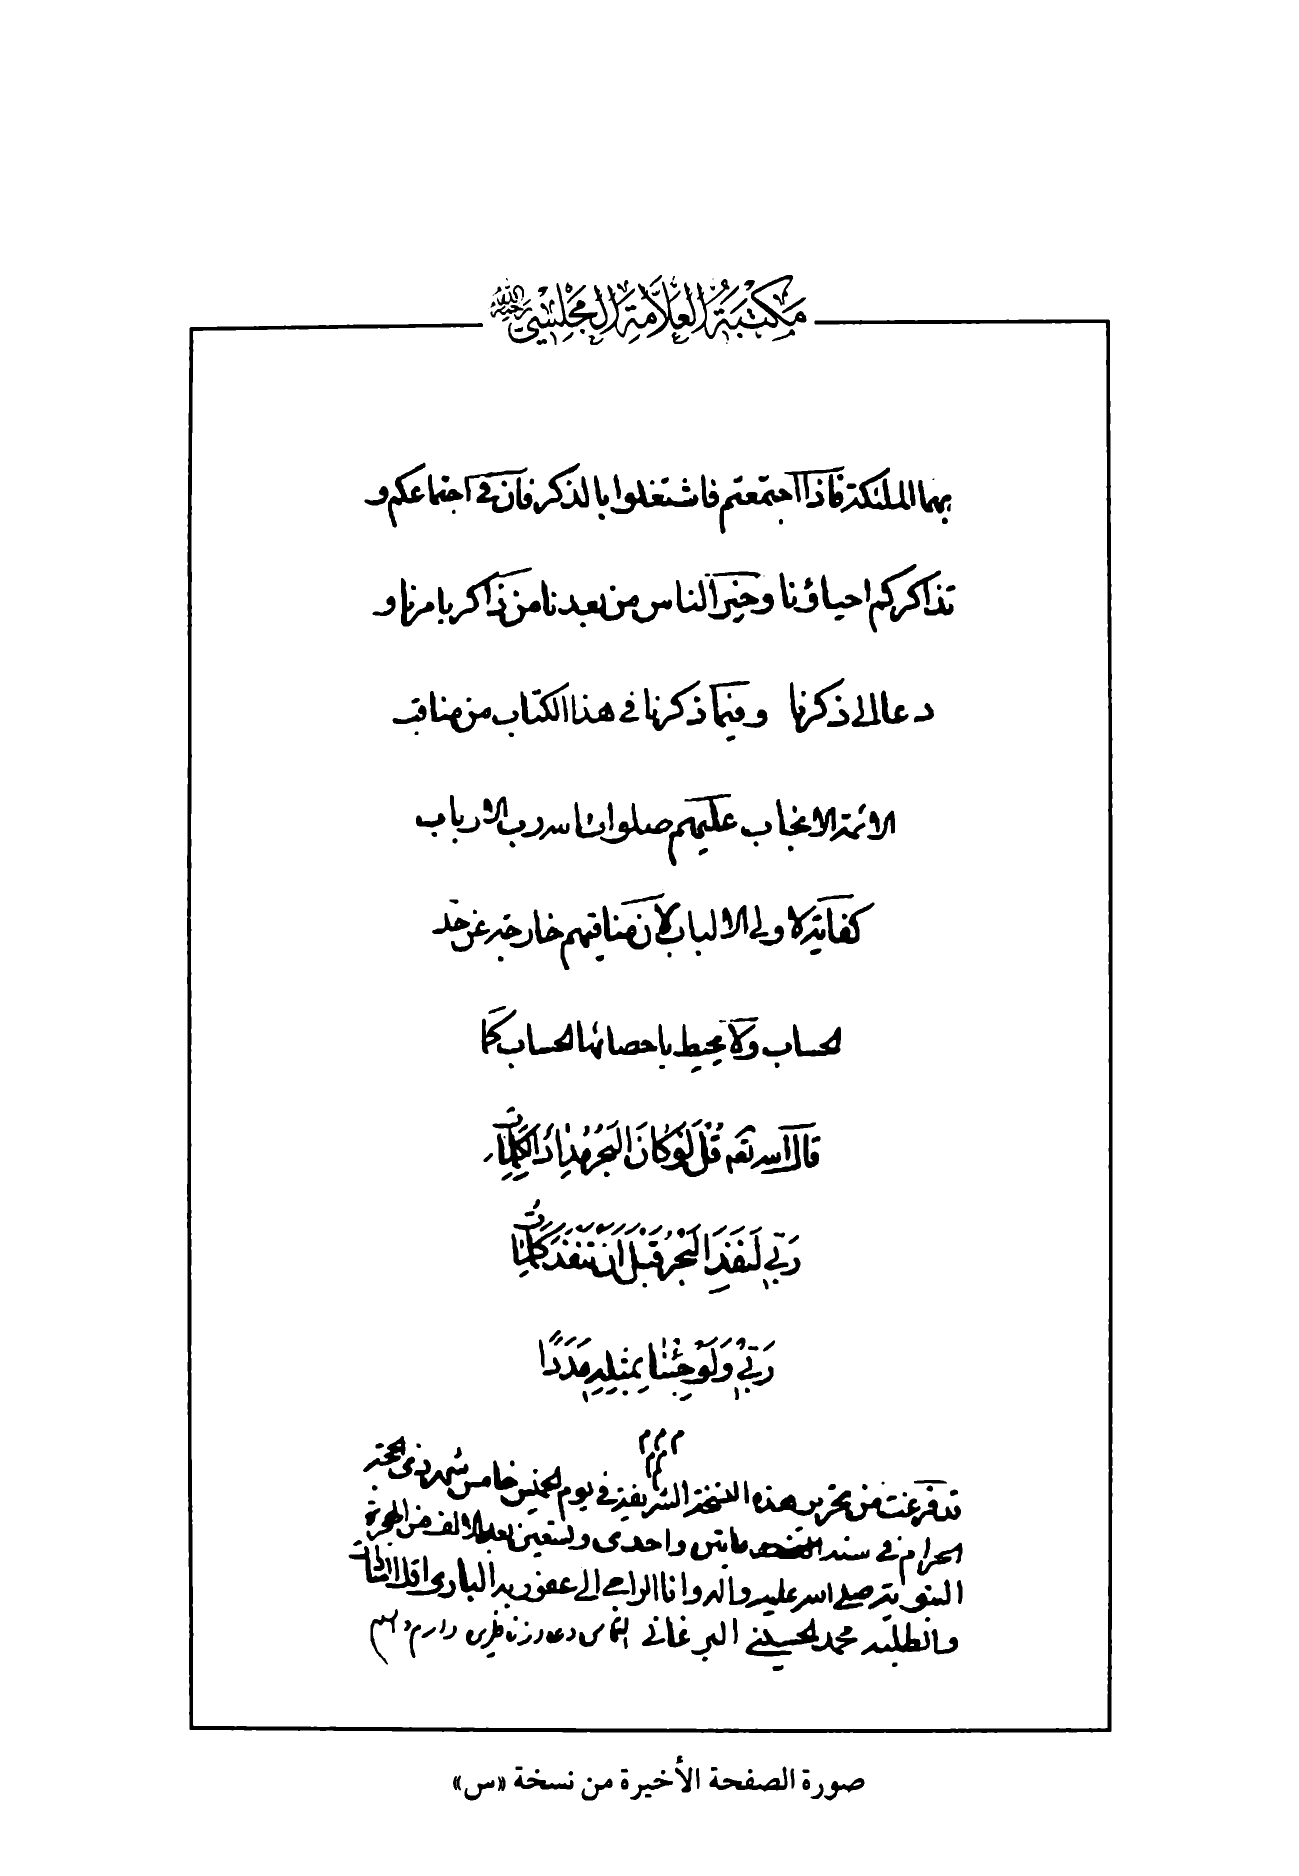 مكتبة العلامة المجلسي رحمه الله
بهما الملئكة فاذا اجتمعتم فاشتغلوا بالذكر فان في اجتماعكم و
تذاكركم احياؤنا وخير الناس من بعدنا من ذاكر بامرنا و
دعا الى ذكرنا وفيما ذكرنا في هذا الكتاب من مناقب
الائمة الانجاب عليهم صلوات الله رب الارباب
كفاية لاولي الالباب لان مناقبهم خارجة عن حد
الحساب ولا يحيط باحصائها الحساب كما
قال الله تعه قُلْ لَوْ كَانَ الْبَحْرُ مِدَادًا لِكَلِمَاتِ
رَبّي لَنَفِدَ الْبَحْرُ قَبْلَ اَنْ تَنْفَدَ كَلِمَاتُ
رَبّي وَلَوْ جِئْنَا بِمِثْلِهِ مَدَدًا
م م م
قد فرغت من تحرير هذه النسخة الشريفة في يوم الخميس خامس شهر ذى الحجة
الحرام في سنة مايتين واحدى وتسعين بعد الالف من الهجرة
النبوية صلى الله عليه واله وانا الراجي الى عفو ربه البارى اقل
والطلبه محمد الحسيني البرغاني التماس دعا از ناظرين دارم
صورة الصفحة الأخيرة من نسخة «س»